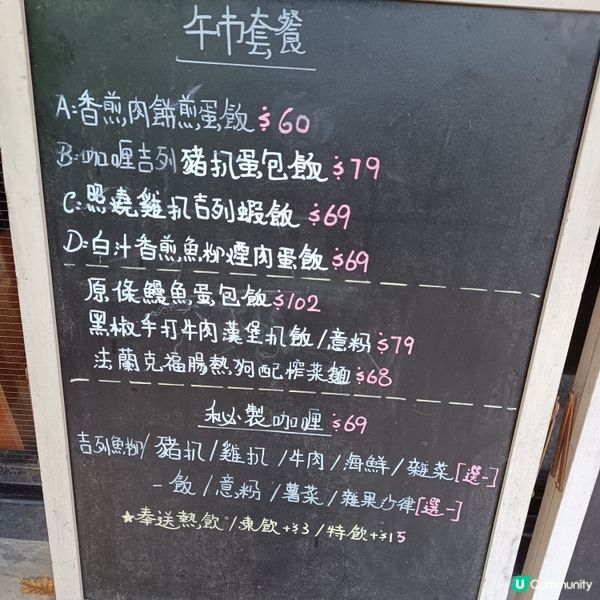 午市套餐
A:香煎肉餅煎蛋飯 $60
B:咖喱吉列豬扒蛋包飯 $79
C:照燒雞扒吉列蝦飯 $69
D:白汁香煎魚柳煙肉蛋飯 $69
原條鰻魚蛋包飯 $102
黑椒手打牛肉漢堡扒飯/意粉 $79
法蘭克福腸熱狗配榨菜麵 $68
秘製咖喱 $69
吉列魚柳/豬扒/雞扒/牛肉/海鮮/雜菜[選一]
-飯/意粉/薯菜/雜果沙律[選一]
★奉送熱飲/東飲+$3/特飲+$15
U Community